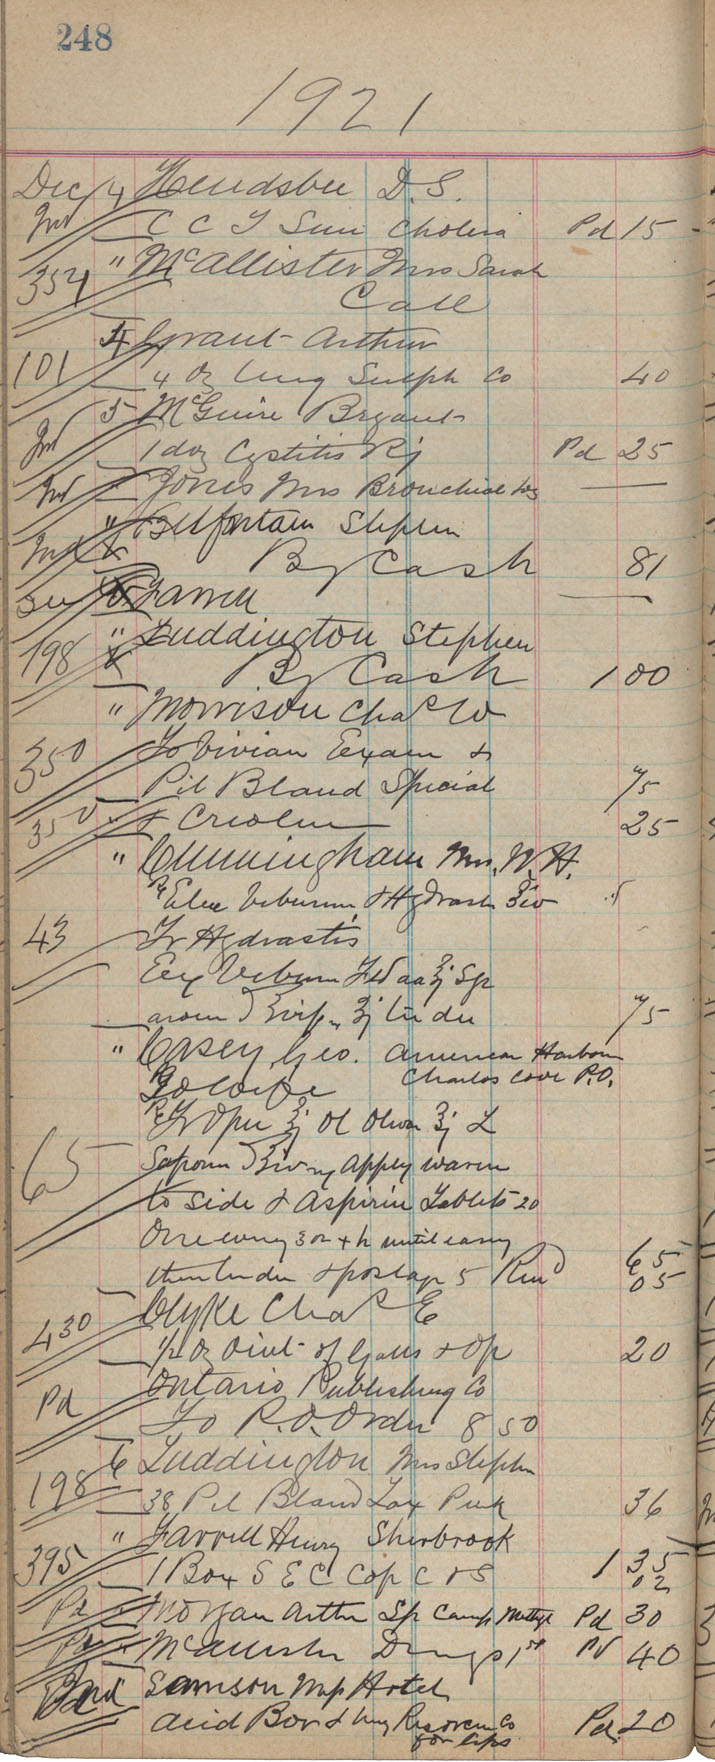 248
1921
Dec 4 Hendsbee D.S.
C C T Sun Cholera Pd 15
" McAllister Mrs Sarah
354 Call
4 Grant Arthur
101 4 Oz Ung Sulph Co 40
5 McGuire Bryant
1 doz Cystitis Pd 25
Jones Mrs Bronchial Loz
" Stephen
By Cash 81
Farrell
" Luddington Stephen
198 By Cash 1 00
" Morrison Chas W
350 To Vivian Exam &
Pil Bland Special 75
350 & Creolin 25
" Cunningham Mrs. W.H.
Rx Elix Viburnum & Hydrastis
43 Tr Hydrastis
Viburn
arom
75
" Casey, Geo. American Harbour
Rx Charlos Cove P.O.
To Wife
Rx Tr Opii Ol Oliva L
65 Saponis Apply warm
to side & Aspirin Tablets 20
One every 3 or 4 h until easy
then & postage 5 65
05
430 Clyke Chas E
1/2 Oz Oint of Galls & Op 20
Pd Ontario Publishing Co
To P.O. Order 8 50
6 Luddington Mrs Stephen
198 38 Pil Bland Lax Pink 36
" Farrell Henry Sherbrook
395 1 Box S E C Cap C & S 1 35
02
Pd Morgan Arthur Sp Camp Methyl Pd 30
Pd McAllister Drugs Pd 40
Samson Hotel
Acid Bor & Ung Resorcin Co Pd 20
for lips